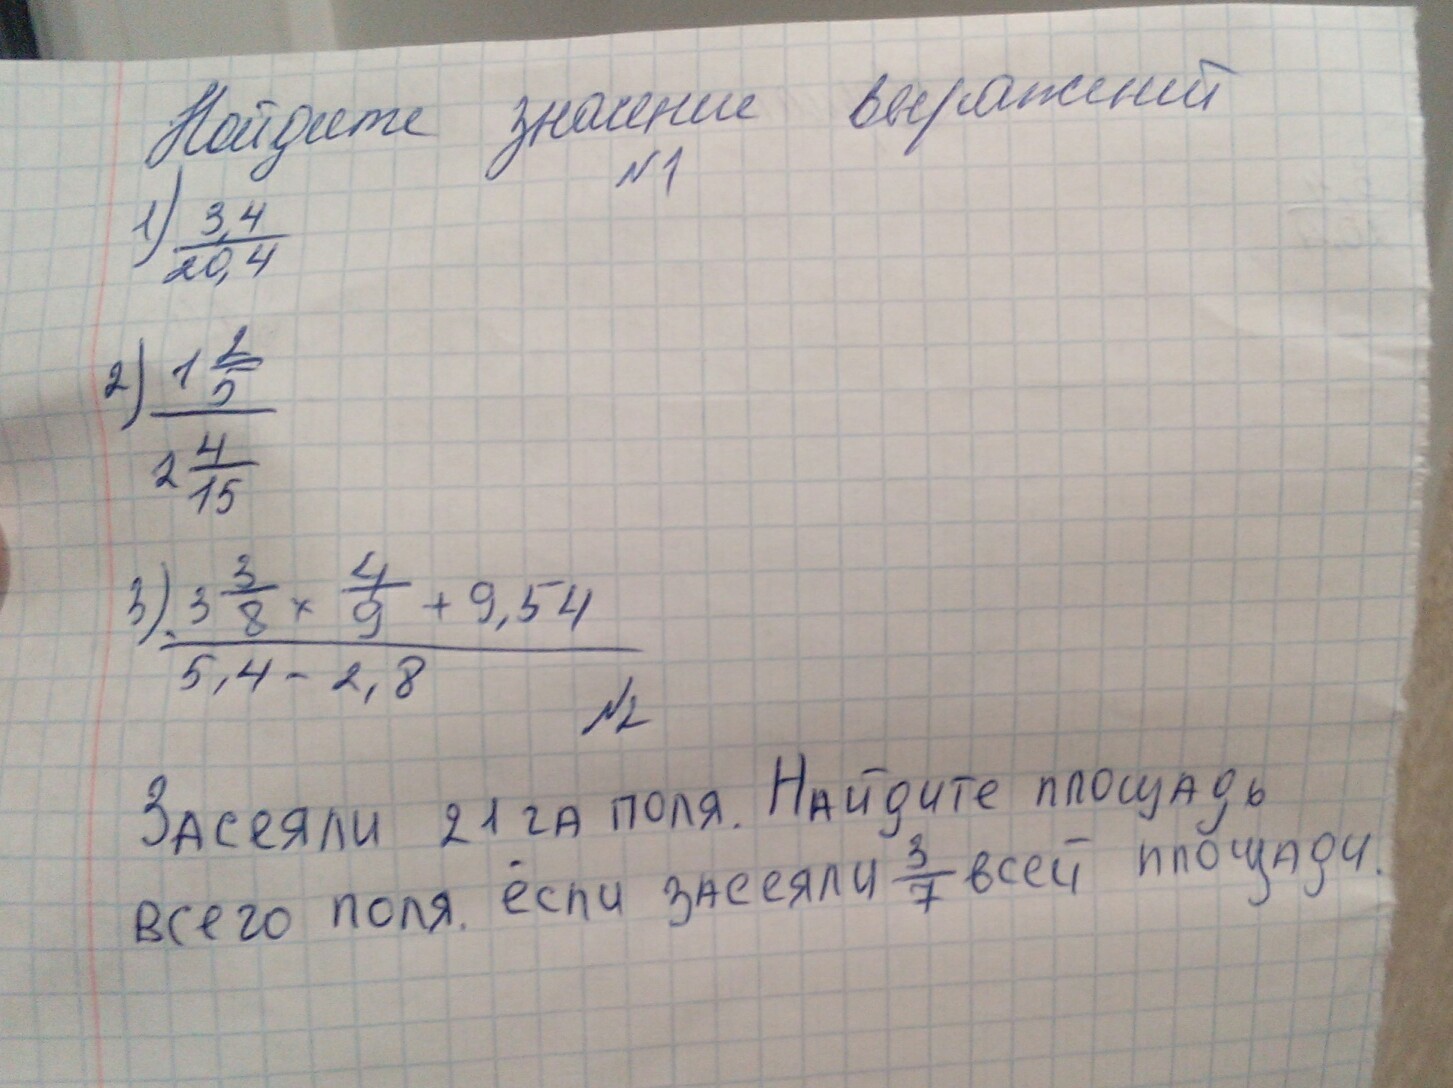 Найдите значение выражений
№1
1) 3,4
20,4
2) 1 2/5
2 4/15
3) 3 3/8 × 4/9 + 9,54
5,4 - 2,8
№2
Засеяли 21 га поля. Найдите площадь
всего поля. если засеяли 3/7 всей площади.